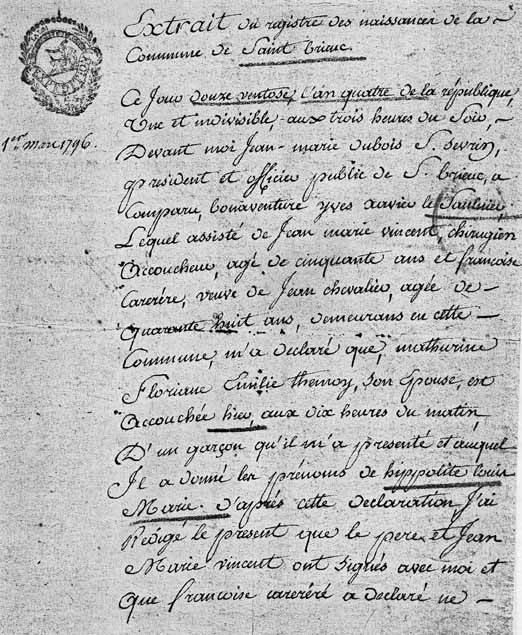 Extrait du registre des naissances de la
Commune de Saint brieuc
Ce Jour douze ventose, l'an quatre de la république,
Une et indivisible, aux trois heures du Soir,
1er mars 1796.
Devant moi Jean-marie dubois S. Sevrin,
président et officier public de S. brieuc, a
Comparu, bonaventure yves xavier le Saulnier,
Lequel assisté de Jean marie vincent, chirugien
Accoucheur, agé de cinquante ans et françoise
Careréré, veuve de Jean chevalier, agée de
quarante huit ans, demeurans en cette
Commune, m'a declaré que, mathurine
Floriane Emilie themoy, Son Epouse, est
Accouchée hier, aux dix heures du matin,
D'un garçon qu'il m'a présenté et auquel
Il a donné les prénoms de hippolite louis
Marie. d'après cette declaration J'ai
Rédigé le present que le pere, et Jean
Marie vincent ont Signés avec moi et
que françoise careréré a declaré ne